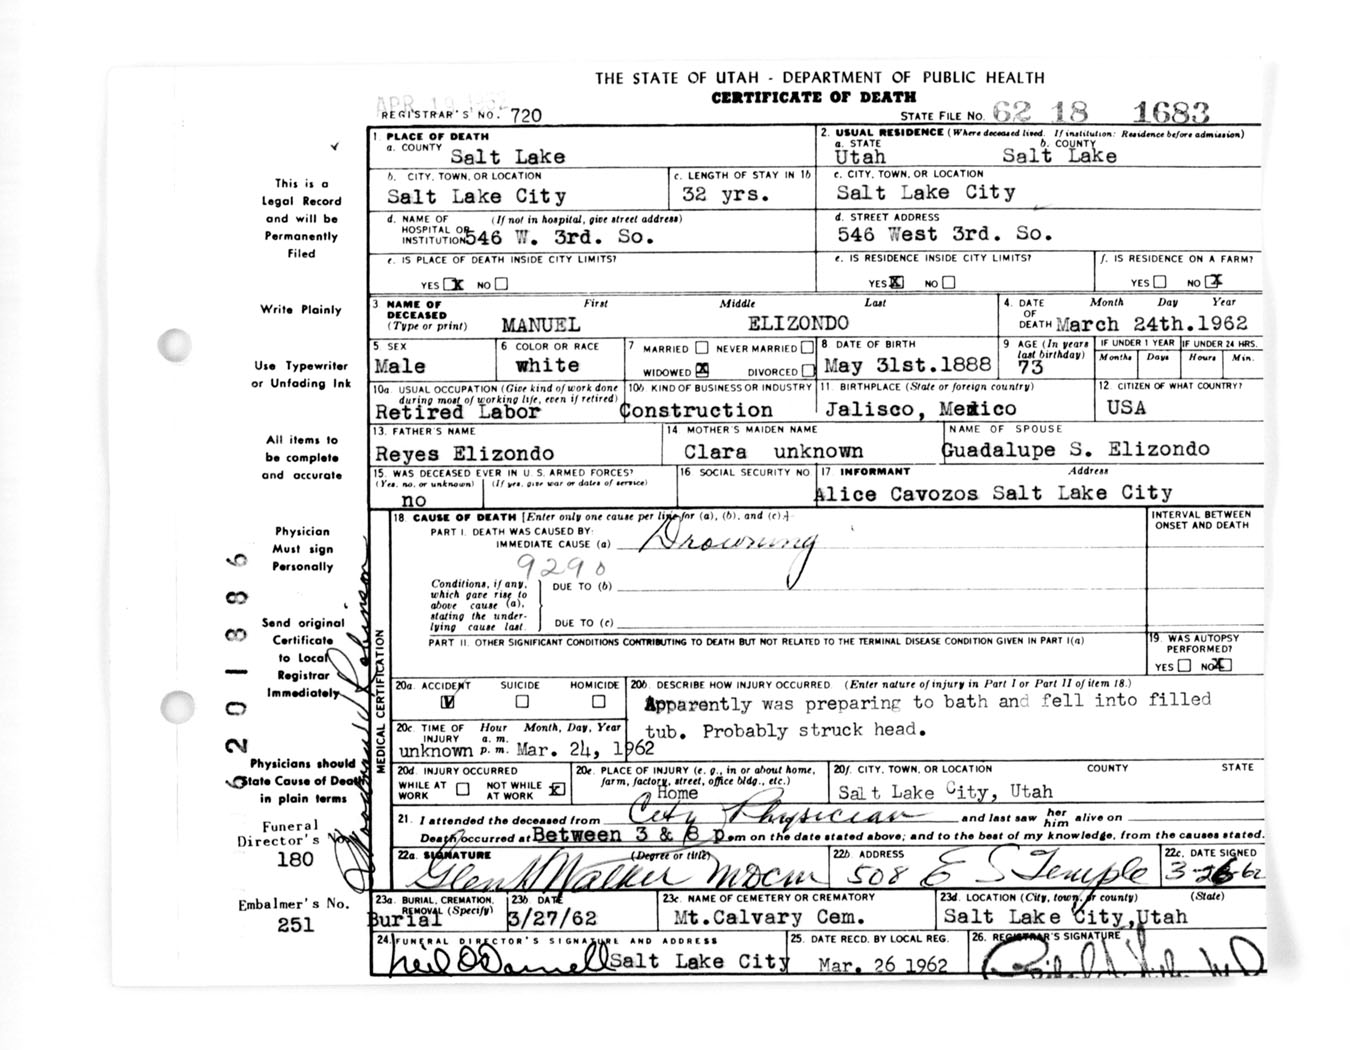 THE STATE OF UTAH - DEPARTMENT OF PUBLIC HEALTH
CERTIFICATE OF DEATH
APR 19 1962
REGISTRAR'S NO. 720
STATE FILE NO. 62 18 1683
This is a
Legal Record
and will be
Permanently
Filed
Write Plainly
Use Typewriter
or Unfading Ink
All items to
be complete
and accurate
Physician
Must sign
Personally
Send original
Certificate
to Local
Registrar
Immediately
Physicians should
State Cause of Death
in plain terms
Funeral
Director's No.
180
Embalmer's No.
251
6201886
Robinson
1. PLACE OF DEATH
a. COUNTY Salt Lake
2. USUAL RESIDENCE (Where deceased lived. If institution: Residence before admission)
a. STATE Utah b. COUNTY Salt Lake
b. CITY, TOWN, OR LOCATION Salt Lake City
c. LENGTH OF STAY IN 1b 32 yrs.
c. CITY, TOWN, OR LOCATION Salt Lake City
d. NAME OF HOSPITAL OR INSTITUTION (If not in hospital, give street address) 546 W. 3rd. So.
d. STREET ADDRESS 546 West 3rd. So.
e. IS PLACE OF DEATH INSIDE CITY LIMITS? YES X NO
e. IS RESIDENCE INSIDE CITY LIMITS? YES X NO
f. IS RESIDENCE ON A FARM? YES NO X
3 NAME OF DECEASED (Type or print) First Middle Last
MANUEL ELIZONDO
4. DATE OF DEATH Month Day Year March 24th.1962
5 SEX Male
6 COLOR OR RACE white
7 MARRIED NEVER MARRIED WIDOWED X DIVORCED
8 DATE OF BIRTH May 31st.1888
9 AGE (In years last birthday) 73
IF UNDER 1 YEAR Months Days
IF UNDER 24 HRS. Hours Min.
10a. USUAL OCCUPATION (Give kind of work done during most of working life, even if retired) Retired Labor
10b KIND OF BUSINESS OR INDUSTRY Construction
11. BIRTHPLACE (State or foreign country) Jalisco, Mexico
12 CITIZEN OF WHAT COUNTRY? USA
13. FATHER'S NAME Reyes Elizondo
14 MOTHER'S MAIDEN NAME Clara unknown
NAME OF SPOUSE Guadalupe S. Elizondo
15. WAS DECEASED EVER IN U.S. ARMED FORCES? (Yes, no, or unknown) (If yes, give war or dates of service) no
16 SOCIAL SECURITY NO
17 INFORMANT Address Alice Cavozos Salt Lake City
MEDICAL CERTIFICATION
18. CAUSE OF DEATH [Enter only one cause per line for (a), (b), and (c).]
PART I. DEATH WAS CAUSED BY:
IMMEDIATE CAUSE (a) Drowning
9290
Conditions, if any, which gave rise to above cause (a), stating the underlying cause last.
DUE TO (b)
DUE TO (c)
INTERVAL BETWEEN ONSET AND DEATH
PART II. OTHER SIGNIFICANT CONDITIONS CONTRIBUTING TO DEATH BUT NOT RELATED TO THE TERMINAL DISEASE CONDITION GIVEN IN PART I(a)
19. WAS AUTOPSY PERFORMED? YES NO X
20a. ACCIDENT SUICIDE HOMICIDE
20b. DESCRIBE HOW INJURY OCCURRED. (Enter nature of injury in Part I or Part II of item 18.)
Apparently was preparing to bath and fell into filled
tub. Probably struck head.
20c. TIME OF INJURY Hour a. m. p. m. Month, Day, Year unknown Mar. 24, 1962
20d. INJURY OCCURRED WHILE AT WORK NOT WHILE AT WORK X
20e. PLACE OF INJURY (e. g., in or about home, farm, factory, street, office bldg., etc.) Home
20f. CITY, TOWN, OR LOCATION COUNTY STATE
Salt Lake City, Utah
21. I attended the deceased from City Physician and last saw her him alive on
Death occurred at Between 3 & 8 p.m on the date stated above; and to the best of my knowledge, from the causes stated.
22a. SIGNATURE (Degree or title) Glen H Walker MDCM
22b ADDRESS 508 E S Temple
22c. DATE SIGNED 3-26-62
23a. BURIAL, CREMATION, REMOVAL (Specify) Burial
23b DATE 3/27/62
23c. NAME OF CEMETERY OR CREMATORY Mt.Calvary Cem.
23d. LOCATION (City, town, or county) (State) Salt Lake City,Utah
24. FUNERAL DIRECTOR'S SIGNATURE AND ADDRESS Neil O'Donnell Salt Lake City
25. DATE RECD. BY LOCAL REG. Mar. 26 1962
26. REGISTRAR'S SIGNATURE